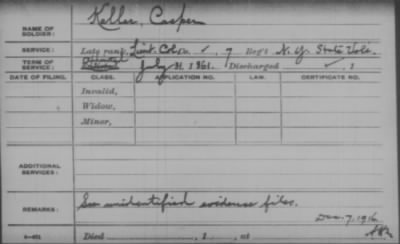 NAME OF SOLDIER: Keller, Casper
SERVICE: Late rank, Lieut. Col. 7 Reg't N. Y. State Vols.
TERM OF SERVICE: Enlisted July 31, 1861. Discharged , 1
DATE OF FILING. CLASS. APPLICATION NO. LAW. CERTIFICATE NO.
Invalid,
Widow,
Minor,
ADDITIONAL SERVICES:
REMARKS: See unidentified evidence files.
Dec. 7, 1916
Died , 1 , at